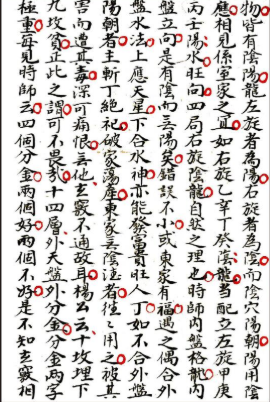 物皆有陰陽龍左旋者為陽右旋者為陰而陰穴陽朝陽用陰
應相見係室家之宜如右旋乙辛丁癸陰龍當配立左旋甲庚
丙壬陽水旺向四局右旋陰龍自然之理也時師內盤格龍內
盤立向是有陰而無陽矣錯誤不小或東家有福遇之偶合外
盤水法上應天星下合水神亦能發富貴旺人丁如不合外盤
陽朝者主斬丁絕祀破家蕩產東家無陰者往往用之被其
害而遭其毒深可痛恨無他玄竅不通故耳楊公云十坟埋下
九坟貧正此之謂可不畏哉十四層外天盤外分金分金兩字
極重每見時師云四個分金兩個好兩個不好是不知玄竅相